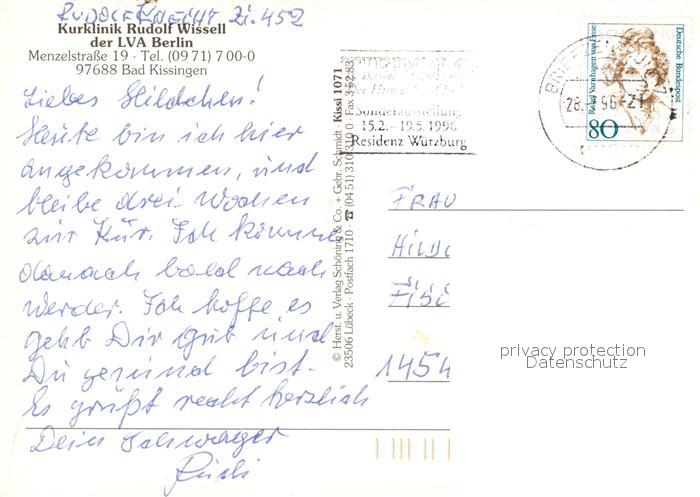 RUDOLF KNECHT Zi. 452
Kurklinik Rudolf Wissell
der LVA Berlin
Menzelstraße 19 · Tel. (09 71) 7 00-0
97688 Bad Kissingen
Liebes Hildchen!
Heute bin ich hier
angekommen, und
bleibe drei Wochen
zur Kur. Ich komme
danach bald nach
Werder. Ich hoffe es
geht Dir gut und
Du gesund bist.
Es grüßt recht herzlich
Dein Schwager
Rudi
© Herst. u. Verlag Schöning & Co. + Gebr. Schmidt · Kissi 1071
23506 Lübeck · Postfach 1710 · ☎ (04 51) 3 10 31 0
Sonderausstellung
15.2. – 19.5.1996
Residenz Würzburg
28. 96-21
Deutsche Bundespost
Rahel Varnhagen von Ense
80
FRAU
HILD
1454
privacy protection
Datenschutz